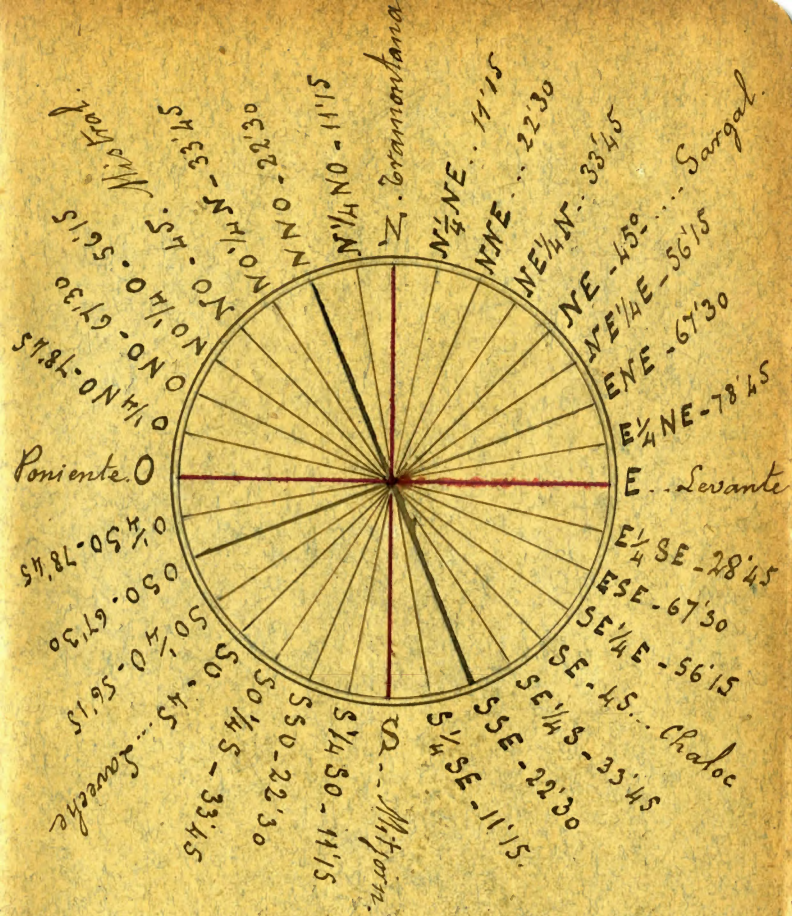 N. Tramontana
N¼NE.. 11'15
NNE.... 22'30
NE¼N.. 33'45
NE - 45º ..... Gargal.
NE¼E - 56'15
ENE - 67'30
E¼NE - 78'45
E...Levante
E¼SE - 28'45
ESE - 67'30
SE¼E - 56'15
SE - 45... Chaloc
SE¼S - 33'45
SSE - 22'30
S¼SE - 11'15.
S... Mitjorn.
S¼SO - 11'15
SSO - 22'30
SO¼S - 33'45
SO - 45 ... Laveche
SO¼O - 56'15
OSO - 67'30
O¼SO - 78'45
Poniente. O
O¼NO - 78'45
ONO - 67'30
NO¼O - 56'15
NO - 45. Mistral.
NO¼N - 33'45
NNO - 22'30
N¼NO - 11'15